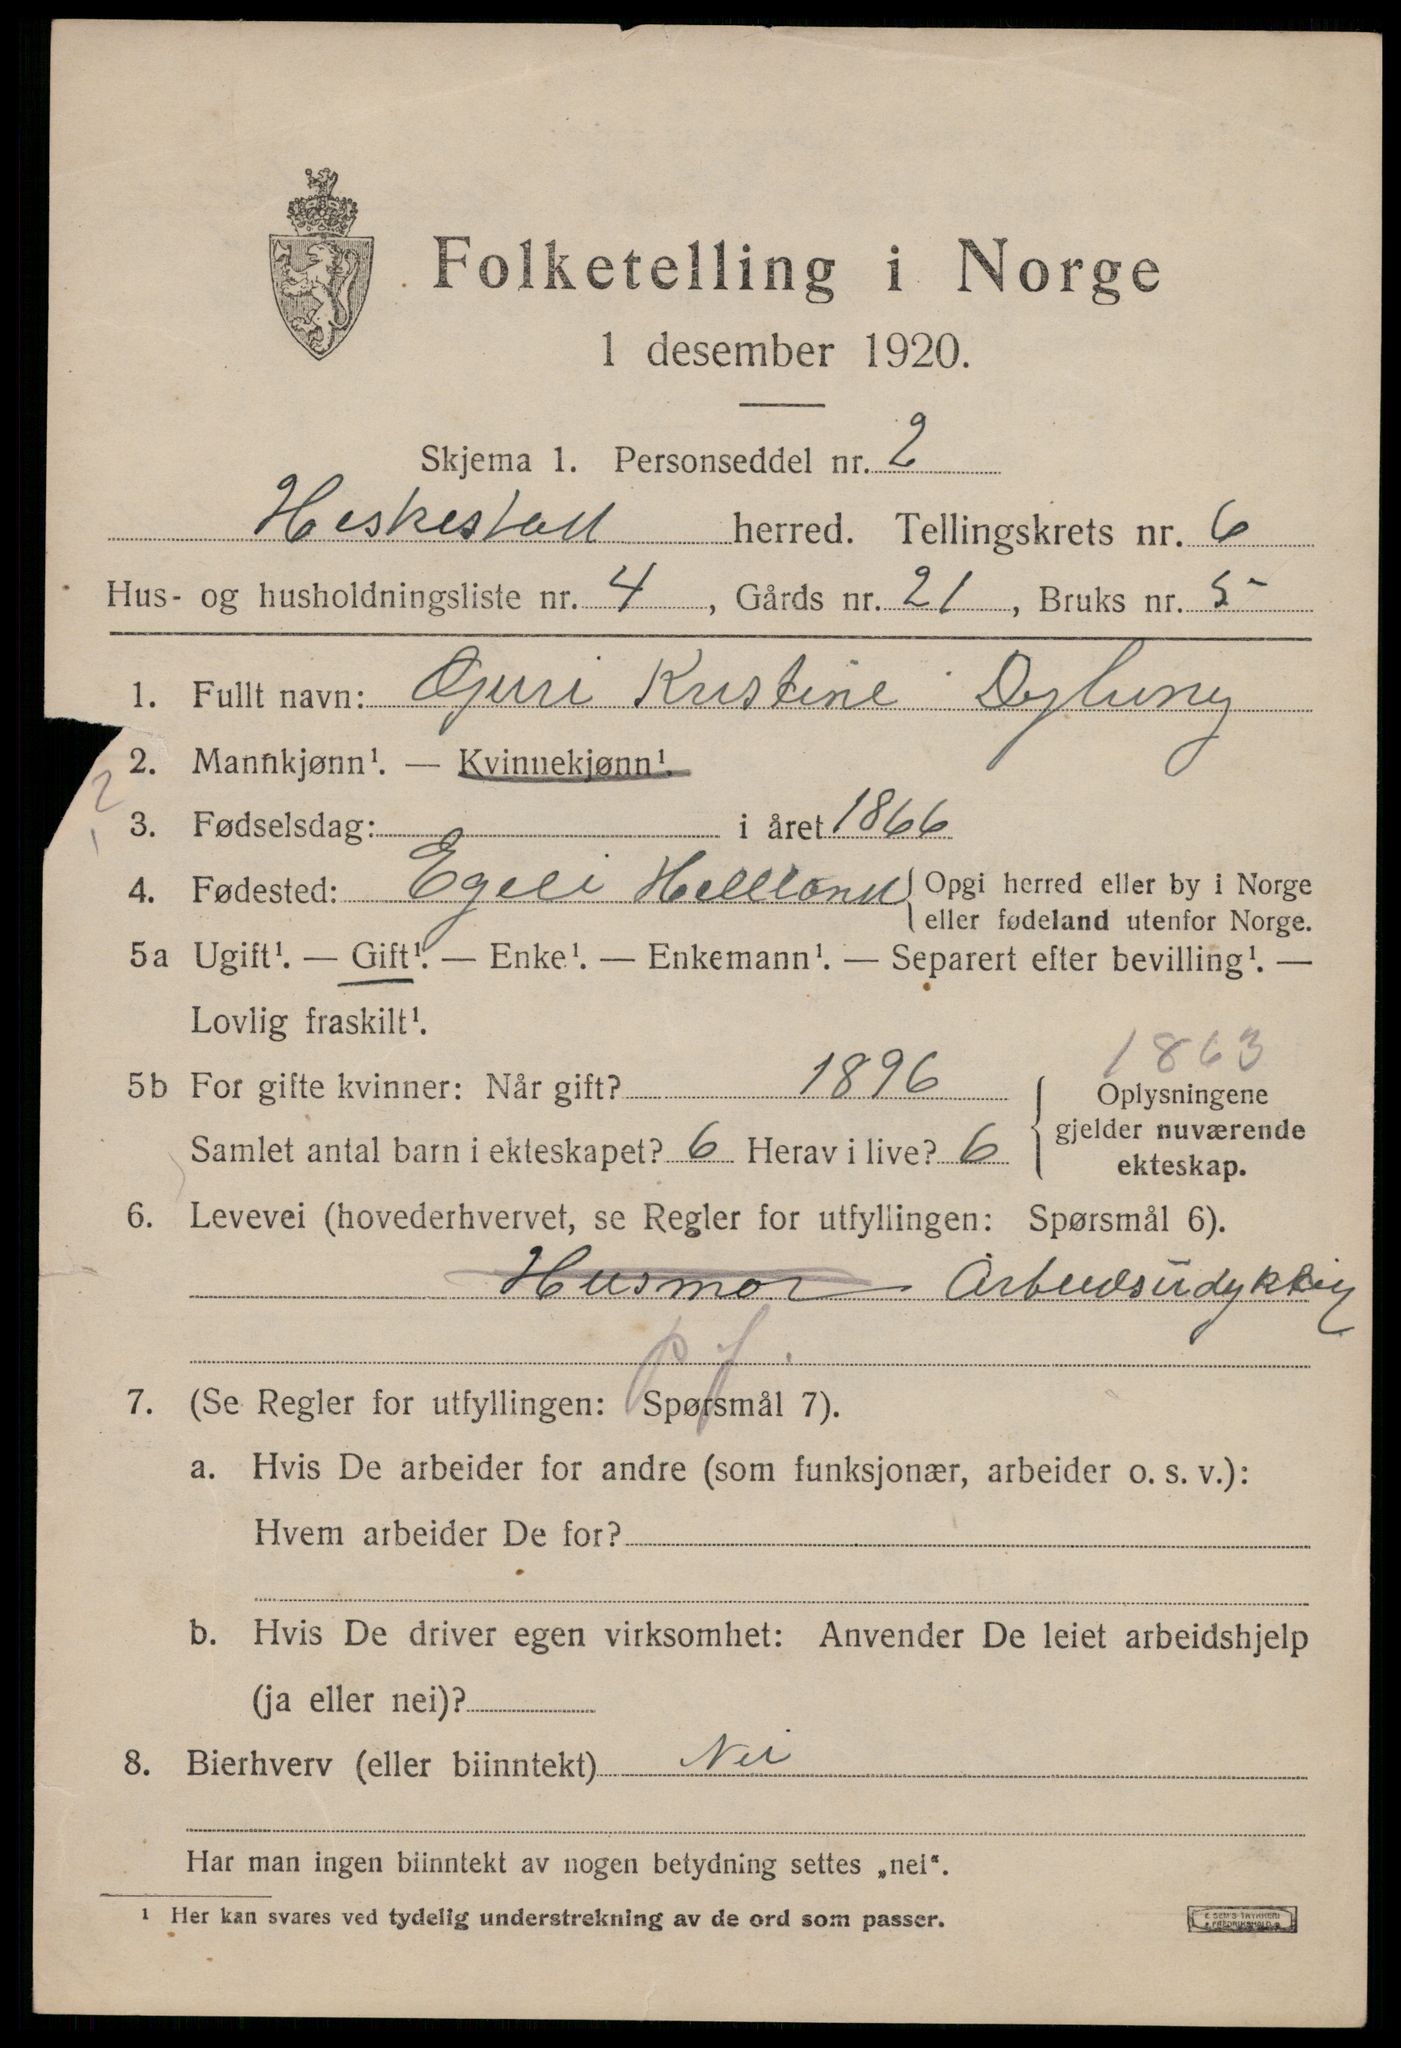 Folketelling i Norge
1 desember 1920.
Skjema 1. Personseddel nr. 2
Heskestad herred. Tellingskrets nr. 6
Hus- og husholdningsliste nr. 4, Gårds nr. 21, Bruks nr. 5
1. Fullt navn: Guri Kristine
2. Mannkjønn¹. — Kvinnekjønn¹.
2
3. Fødselsdag: i året 1866
4. Fødested: Egeli Helleland { Opgi herred eller by i Norge
eller fødeland utenfor Norge.
5a Ugift¹. — Gift¹. — Enke¹. — Enkemann¹. — Separert efter bevilling¹. —
Lovlig fraskilt¹.
1863
5b For gifte kvinner: Når gift? 1896 { Oplysningene
gjelder nuværende
Samlet antal barn i ekteskapet? 6 Herav i live? 6
ekteskap.
6. Levevei (hovederhvervet, se Regler for utfyllingen: Spørsmål 6).
Husmor Arbeidsudyktig
7. (Se Regler for utfyllingen: Spørsmål 7).
a. Hvis De arbeider for andre (som funksjonær, arbeider o. s. v.):
Hvem arbeider De for?
b. Hvis De driver egen virksomhet: Anvender De leiet arbeidshjelp
(ja eller nei)?
8. Bierhverv (eller biinntekt) Nei
Har man ingen biinntekt av nogen betydning settes „nei".
¹ Her kan svares ved tydelig understrekning av de ord som passer.
E SEM'S TRYKKERI
FREDRIKSHALD